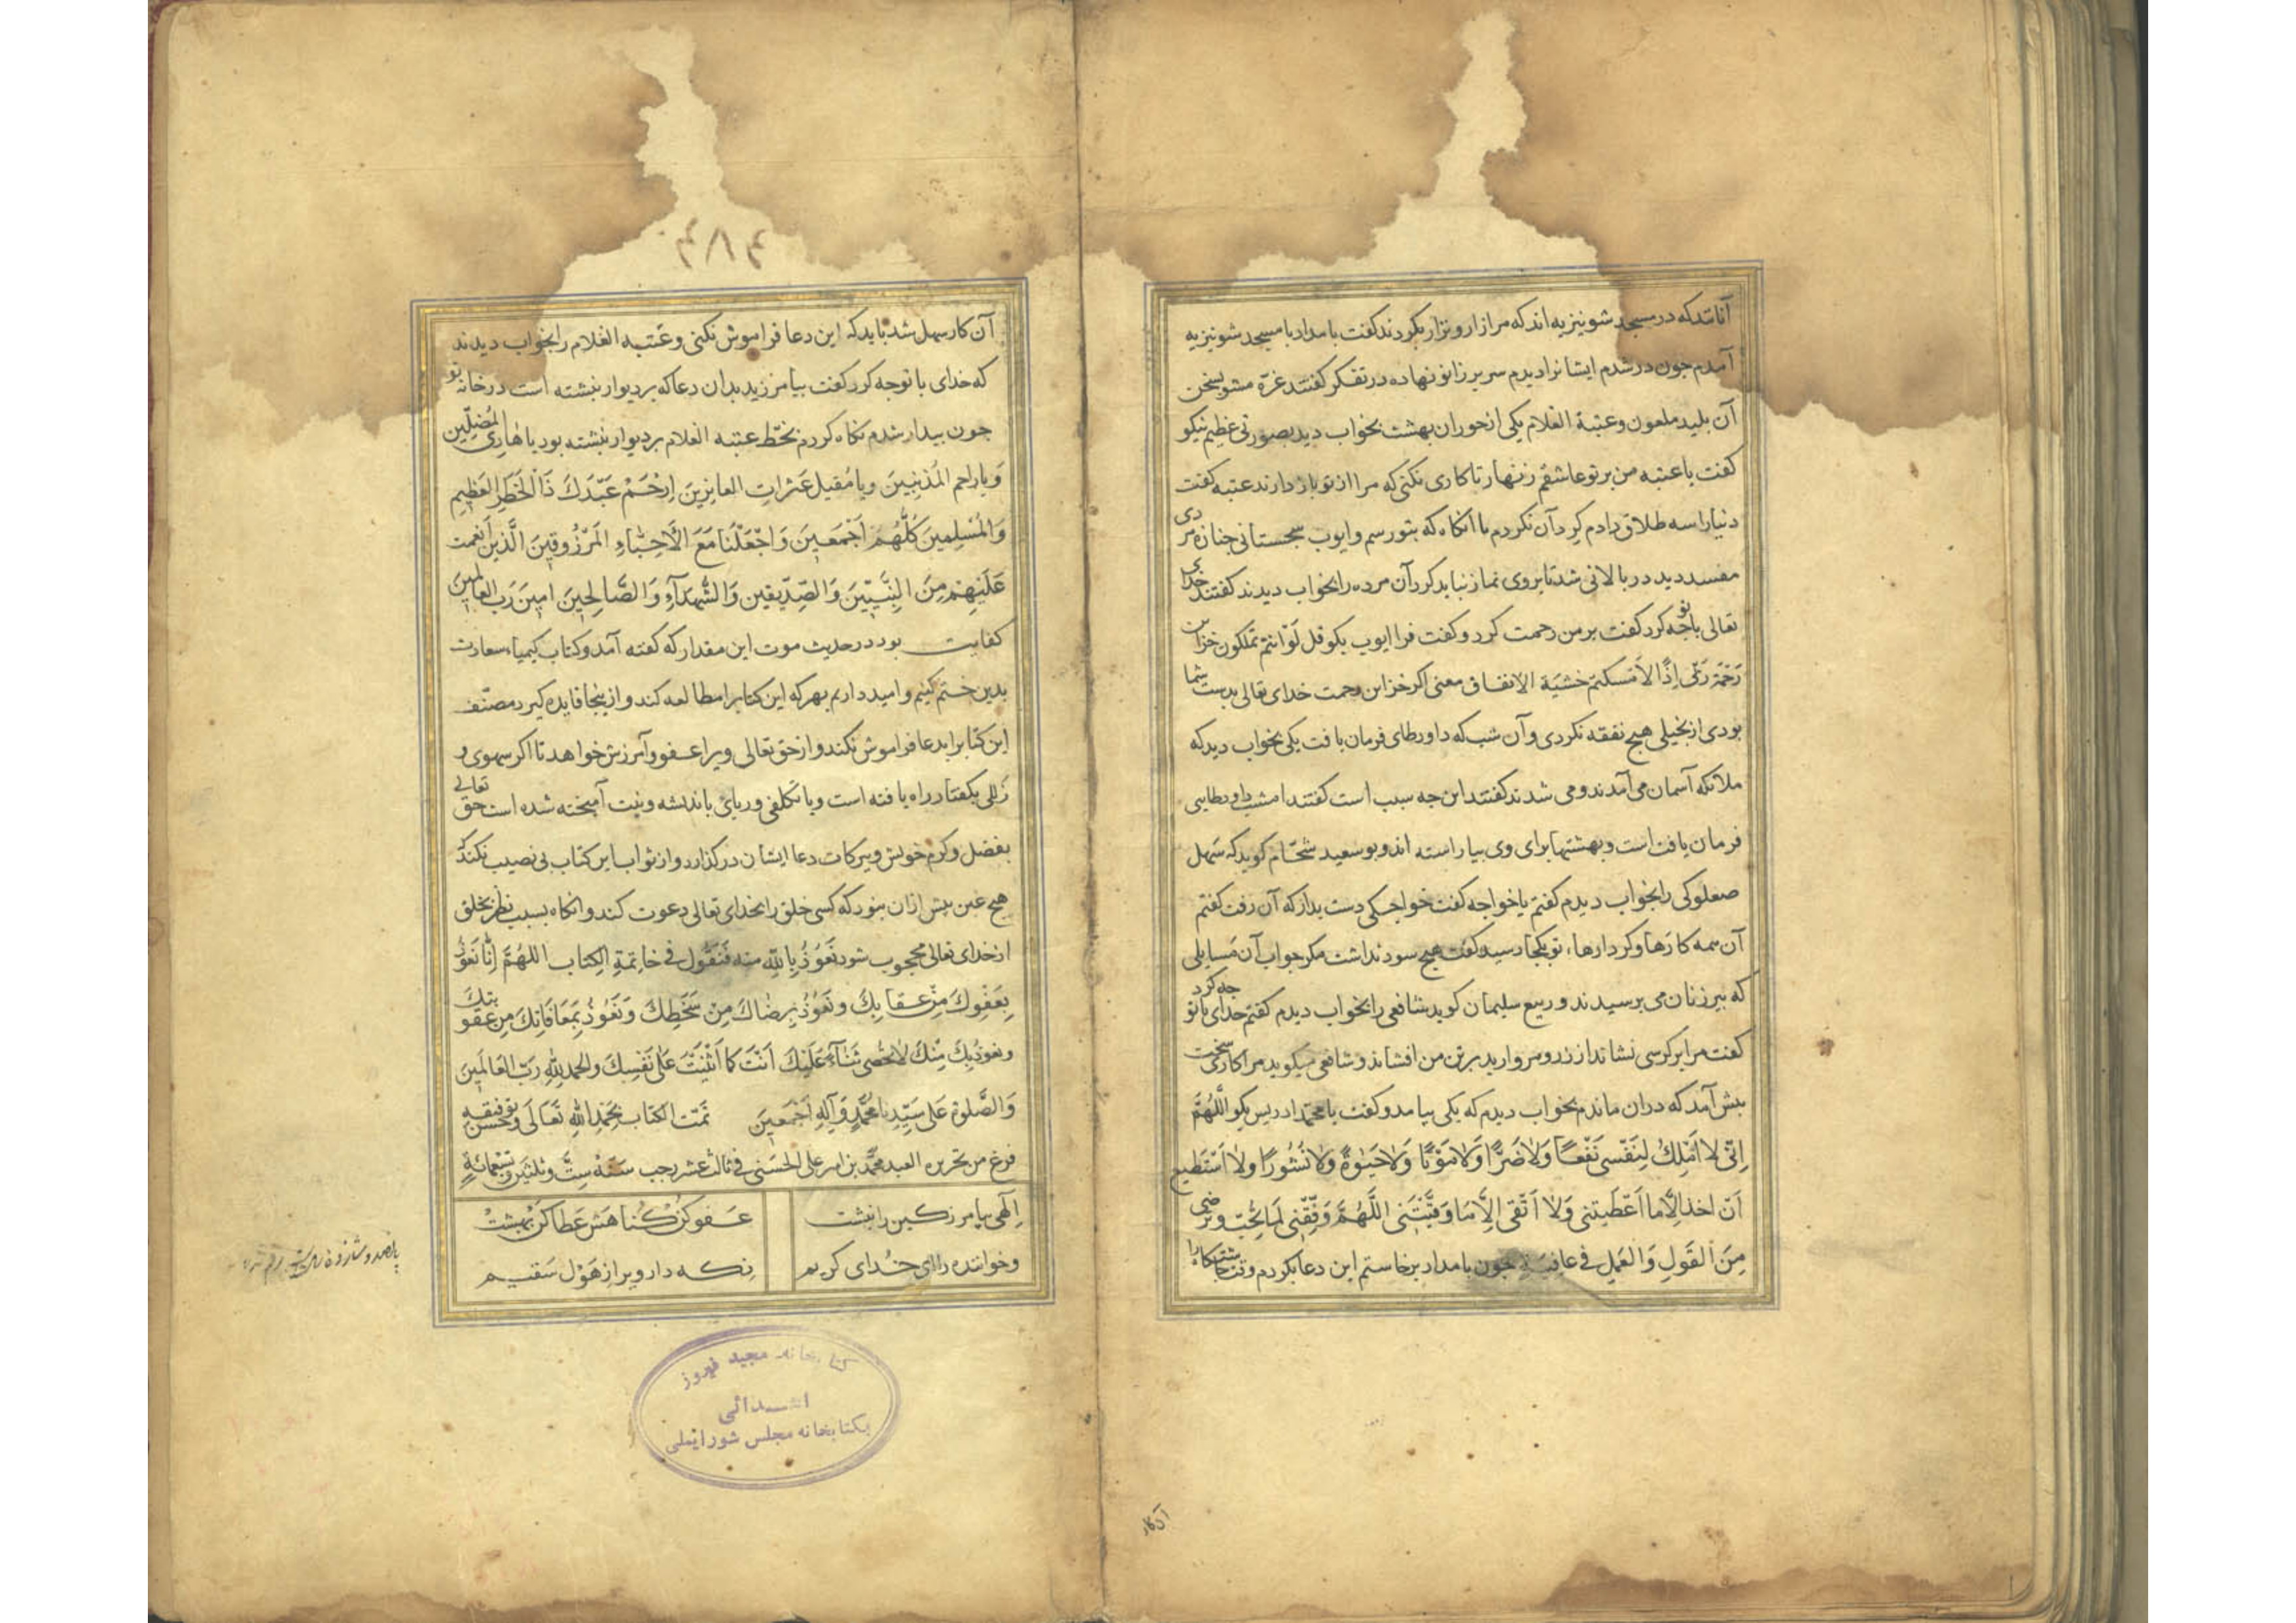 آنانند که در مسجد شونیزیه اند که مرا زار و نزار بکردند گفت بامداد با مسجد شونیزیه
آمدم جون در شدم ایشانرا دیدم سر بر زانو نهاده در تفکر گفتند غرّه مشو بسخن
آن بلید ملعون و عتبة الغلام یکی از حوران بهشت بخواب دید بصورتی عظیم نیکو
گفت یا عتبه من بر تو عاشقم زنهار تا کاری نکنی که مرا از تو باز دارند عتبه گفت
دنیا را سه طلاق دادم کرد آن نکردم تا آنکاه که بتو رسم و ایوب سجستانی جنازه مردی
مفسد دید در بالائی شد تا بر وی نماز نباید کرد آن مرده را بخواب دیدند گفتند خدای
تعالی با تو جه کرد گفت بر من رحمت کرد و گفت فرا ایوب بکو قل لَوْ انتم تملکون خزاین
رَحْمَةِ رَبّی اِذًا لَاَمْسَکتم خشیَة الانفاق معنی اکر خزاین رحمت خدای تعالی بدست شما
بودی از بخیلی هیج نفقه نکردی و آن شب که داود طای فرمان یافت یکی بخواب دید که
ملائکه آسمان می آمدند و می شدند گفتند این جه سبب است گفتند امشب داود طایی
فرمان یافت است و بهشتها برای وی بیاراسته اند و بو سعید شحّام کوید که سهل
صعلوکی را بخواب دیدم گفتم یا خواجه گفت خواجکی دست بدار که آن رفت گفتم
آن همه کارها و کردارهاء تو بکجا رسید گفت هیج سود نداشت مکر جواب آن مسایلی
که بیرزنان می برسیدند و ربیع سلیمان کوید شافعی را بخواب دیدم گفتم خدای با تو جه کرد
گفت مرا بر کرسی نشاند از زر و مروارید بر من افشاند و شافعی میکوید مرا کاری سخت
بیش آمد که دران ماندم بخواب دیدم که یکی بیامد و گفت یا محمّد ادریس بکو اللّهُمَّ
اِنّی لا اَمْلِكُ لِنَفْسی نَفْعًا وَلا ضَرًّا وَلا مَوْتًا وَلا حَیوةً وَلا نُشُورًا وَلا اَسْتَطیع
اَنْ اخذ اِلّا ما اَعْطَیْتنی وَلا اَتّقی اِلّا مَا وَقَّیْتَنی اللَّهُمَّ وَفِّقْنی لِمَا تُحِبّ وَتَرْضی
مِنَ القَولِ وَالعَمَلِ فی عافِیَةٍ جون بامداد برخاستم این دعا بکردم وقت جاشتکاه را
آن کار
آن کار سهل شد باید که این دعا فراموش نکنی و عتبه الغلام را بخواب دیدند
که خدای با تو جه کرد گفت بیامرزید بدان دعا که بر دیوار نبشته است در خانه تو
جون بیدار شدم نکاه کردم بخطّ عتبه الغلام بر دیوار نبشته بود یا هادِیَ المُضِلّین
وَیا راحم المُذنِبِینَ ویا مُقیل عَثَراتِ العاثِرینَ اِرْحَمْ عَبْدَكَ ذَا الخَطَرِ العَظِیمِ
وَالمُسْلِمینَ کُلَّهُمْ اَجْمَعینَ وَاجْعَلْنَا مَعَ الاَحِبّاءِ المَرْزُوقینَ الَّذینَ اَنعمت
عَلَیْهِمْ مِنَ النَّبِیّینَ وَالصِّدّیقین وَالشُّهَدَآءِ وَالصَّالِحینَ امینَ رَبَّ العالَمینَ
کفایت بود در حدیث موت این مقدار که کفته آمد و کتاب کیمیاء سعادت
بدین ختم کنیم و امید داریم بهر که این کتابرا مطالعه کند و از ینجا فایده کیرد مصنّف
این کتابرا بدعا فراموش نکند و از حق تعالی ویرا عفو و آمرزش خواهد تا اکر سهوی و
زللی بکفتار راه یافته است ویا تکلفی و ریائی باندیشه و نیت آمیخته شده است حق تعالی
بفضل و کرم خویش و ببرکات دعا ایشان در کذارد و از ثواب این کتاب بی نصیب نکند که
هیج غبن بیش ازان نبود که کسی خلق را بخدای تعالی دعوت کند و آنکاه بسبب نظر بخلق
از خدای تعالی محجوب شود نَعُوذُ بِاللّهِ منه فَنَقُول فی خاتِمَةِ الکِتاب اللهُمَّ اِنّا نَعُوذُ
بِعَفْوِكَ مِنْ عِقابِكَ وَنَعُوذُ بِرِضاكَ مِنْ سَخَطِكَ وَنَعُوذُ بِمُعَافَاتِكَ مِن عقوبتك
ونعوذ بِكَ مِنْكَ لا نحْصی ثَنآءً عَلَیْكَ اَنْتَ کَمَا اَثْنَیْتَ عَلی نَفْسِكَ والحمد لِلّهِ رَبِّ العَالَمِینَ
وَالصَّلوة عَلی سَیِّدِنا مُحَمَّدٍ وَآلِهِ اَجْمَعِینَ تَمّت الکتاب بِحَمْدِ اللهِ تَعَالَی وَحُسْنِ توفیقه
فرغ من تحریره العبد محمّد بن امیر علی الحسَنی فی ثالث عشر رجب سَنَة سِتّ وثلثین وتسعمائة
اِلهی بیامرز کین را نبشت عفو کن کناهش عطا کن بهشت
وخواننده را ای خدای کریم نکه دار ویرا از هَوْل سَقیم
کتابخانه مجید فیروز
اهدائی
بکتابخانه مجلس شورایملی